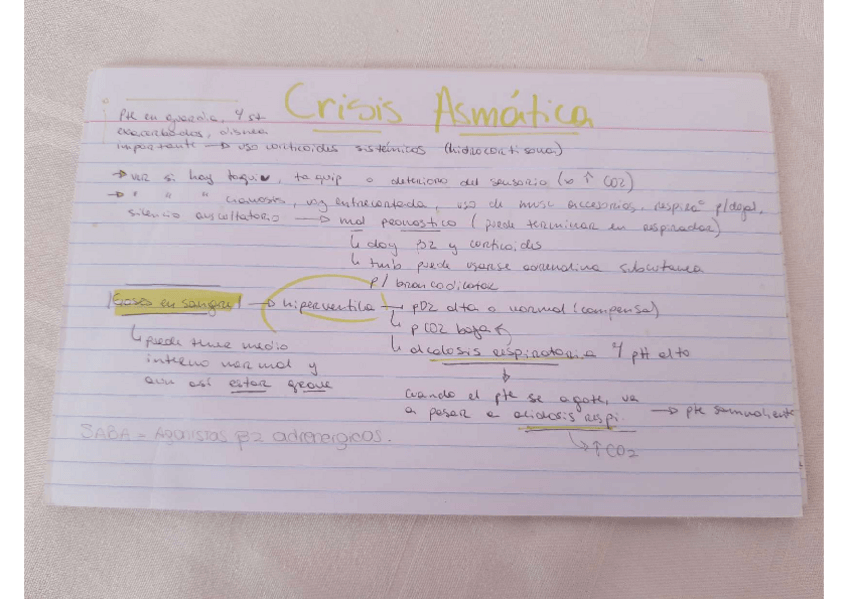 Crisis Asmática
Pte en guardia, 4 st
exacerbados, disnea
importante → uso corticoides sistémicos (hidrocortisona)
→ ver si hay taqui, taquip o deterioro del sensorio (x ↑ CO2)
→ " " " cianosis, voz entrecortada, uso de musc accesorios, respirac° p/dojal,
silencio auscultatorio → mal pronostico (puede terminar en respirador)
↳ doy β2 y corticoides
↳ tmb puede usarse adrenalina subcutanea
p/ broncodilatar
Gases en sangre → hiperventila → pO2 alta o normal (compensa)
↳ pCO2 baja
↳ alcalosis respiratoria y pH alto
↳ puede tener medio
interno normal y
aun así estar grave
↓
cuando el pte se agote, va
a pasar a acidosis respi. → pte somnoliento
↳ ↑ CO2
SABA = Agonistas β2 adrenergicos.